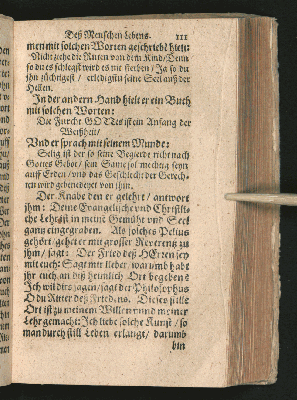 Deß Menschen Lebens. 111
men mit solchen Worten geschriebē hielt:
Nicht ziehe die Ruten von dem Kind/ Denn
so du es schlegst wird es nie sterben/ Ja so du
ihn züchtigest/ erledigstu seine Seel auß der
Hellen.
In der andern Hand hielt er ein Buch
mit solchen Worten:
Die Furcht GOTtes ist ein Anfang der
Weißheit/
Vnd er sprach mit seinem Munde:
Selig ist der so seine Begierde richt nach
Gottes Gebot/ sein Same sol mechtig seyn
auff Erden/ vnd das Geschlecht der Gerech-
ten wird gebenedeyet von ihm.
Der Knabe den er gelehrt/ antwort
jhm: Deine Evangelische vnd Christli-
che Lehr ist in meine Gemüht vnd Seel
gantz eingegraben. Als solches
gehört/ geht er mit grosser Reverentz zu
jhm/ sagt: Der Fried deß HErren sey
mit euch: Sagt mir lieber/ warumb habt
jhr euch an diß heimlich Ort begeben?
Ich wil dirs sagen/ sagt der Philosophus
O du Ritter deß Friedens. Dieser stille
Ort ist zu meinem Willen vnnd meiner
Lehr gemacht: Ich liebe solche Kunst/ so
man durch still Leben erlangt/ darumb
bin